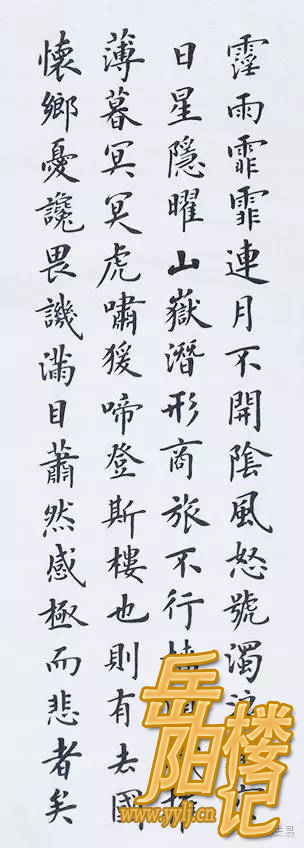 霪雨霏霏連月不開陰風怒號濁
日星隱曜山嶽潛形商旅不行
薄暮冥冥虎嘯猨啼登斯樓也則有去國
懷鄉憂讒畏譏滿目蕭然感極而悲者矣
岳阳楼记
www.yylj.cn